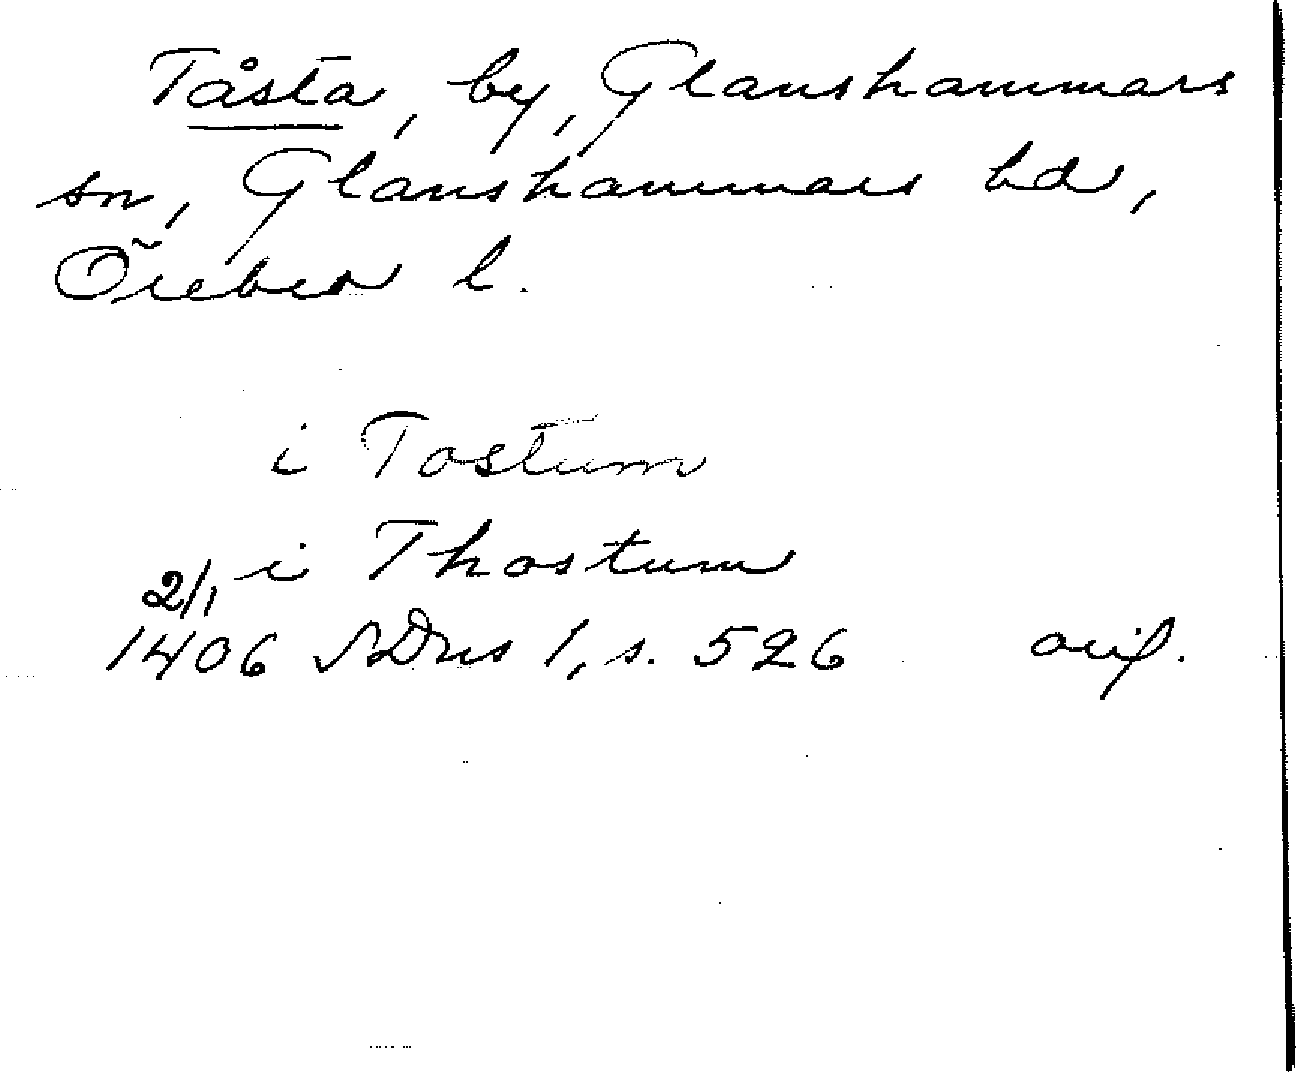 Tåsta, by, Glanshammars
sn, Glanshammars hd,
Örebro l.
i Tostum
i Thostum
2/1
1406 SDns 1, s. 526 orig.